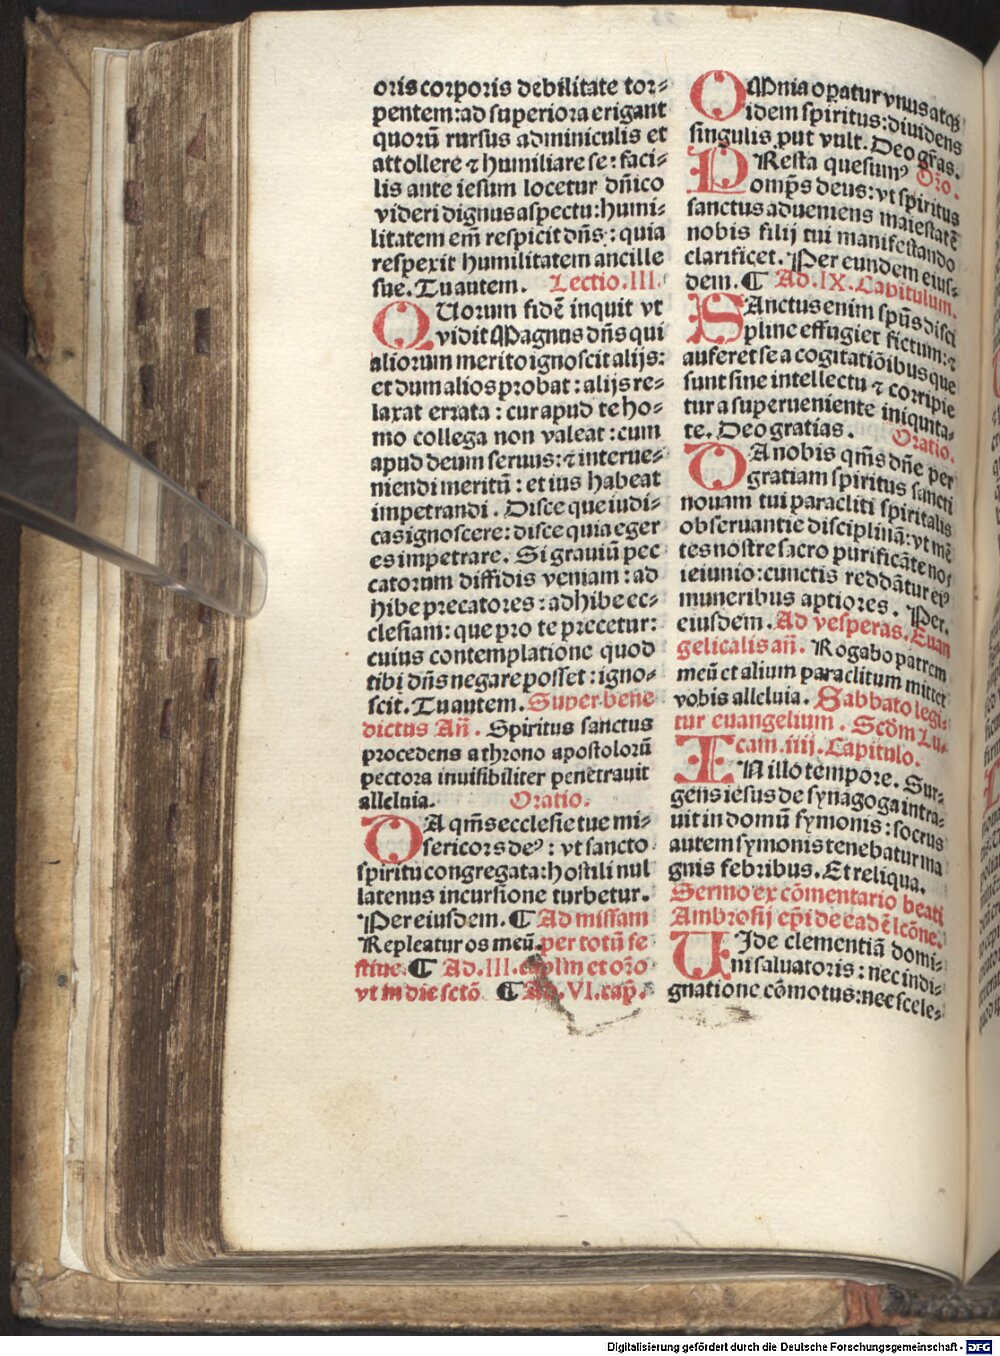 oris corporis debilitate tor⸗
pentem: ad superiora erigant
quorū rursus adminiculis et
attollere ⁊ humiliare se: faci⸗
lis ante iesum locetur dn̄ico
videri dignus aspectu: humi⸗
litatem em̄ respicit dn̄s: quia
respexit humilitatem ancille
sue. Tu autem. Lectio. III.
QUorum fidē inquit vt
vidit Magnus dn̄s qui
aliorum merito ignoscit alijs:
et dum alios probat: alijs re⸗
laxat errata: cur apud te ho⸗
mo collega non valeat: cum
apud deum seruus: ⁊ interue⸗
niendi meritū: et ius habeat
impetrandi. Disce que iudi⸗
cas ignoscere: disce quia eger
es impetrare. Si grauiū pec
catorum diffidis veniam: ad
hibe precatores: adhibe ec⸗
clesiam: que pro te precetur:
cuius contemplatione quod
tibi dn̄s negare posset: igno⸗
scit. Tu autem. Super bene
dictus An̄. Spiritus sanctus
procedens a throno apostolorū
pectora inuisibiliter penetrauit
alleluia. Oratio.
DA qm̄s ecclesie tue mi⸗
sericors deꝰ: vt sancto
spiritu congregata: hostili nul
latenus incursione turbetur.
Per eiusdem. ¶ Ad missam
Repleatur os meū. per totū fe
stiue. ¶ Ad. III. caplm̄ et or̄o
vt in die sctō. ¶ Ad. VI. cap̄.
OMnia opatur vnus atqꝫ
idem spiritus: diuidens
singulis ꝓut vult. Deo gr̄as.
PResta quesumꝰ Or̄o.
omp̄s deus: vt spiritus
sanctus adueniens maiestatē
nobis filij tui manifestando
clarificet. Per eundem eius⸗
dem. ¶ Ad. IX. Capitulum.
SAnctus enim spūs disci
pline effugiet fictum: ⁊
auferet se a cogitatiōibus que
sunt sine intellectu ⁊ corripie
tur a superueniente iniquita⸗
te. Deo gratias. Oratio.
DA nobis qm̄s dn̄e per
gratiam spiritus sancti
nouam tui paracliti spiritalis
obseruantie disciplinā: vt mē
tes nostre sacro purificāte nos
ieiunio: cunctis reddātur eiꝰ
muneribus aptiores. Per.
eiusdem. Ad vesperas. Euan
gelicalis an̄. Rogabo patrem
meū et alium paraclitum mittet
vobis alleluia. Sabbato legi⸗
tur euangelium. Scd̄m Lu⸗
cam. iiij. Capitulo.
IN illo tempore. Sur⸗
gens iesus de synagoga intra⸗
uit in domū symonis: socrus
autem symonis tenebatur ma
gnis febribus. Et reliqua.
Sermo ex cōmentario beati
Ambrosij ep̄i de eadē lcōne.
UIde clementiā domi⸗
ni saluatoris: nec indi⸗
gnatione cōmotus: nec scele⸗
Digitalisierung gefördert durch die Deutsche Forschungsgemeinschaft - DFG